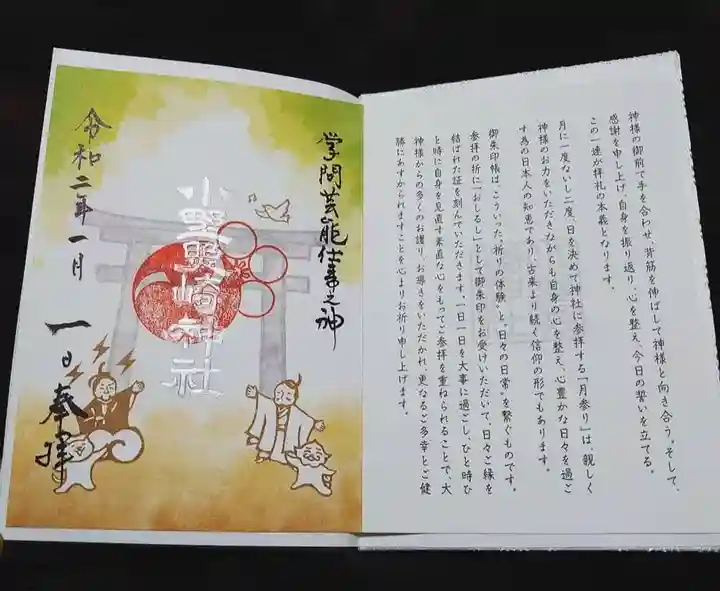 神様の御前で手を合わせ、背筋を伸ばして神様と向き合う。そして、
感謝を申し上げ、自身を振り返り、心を整え、今日の誓いを立てる。
この一連が拝礼の本義となります。
月に一度ないし二度、日を決めて神社に参拝する「月参り」は、親しく
神様のお力をいただきながらも自身の心を整え、心豊かな日々を過ご
す為の日本人の知恵であり、古来より続く信仰の形でもあります。
御朱印帳は、こういった“祈りの体験”と“日々の日常”を繋ぐものです。
参拝の折に「おしるし」として御朱印をお受けいただいて、日々ご縁を
結ばれた証を刻んでいただきます。一日一日を大事に過ごし、ひと時ひ
と時に自身を見直す素直な心をもってご参拝を重ねられることで、大
神様からの多くのお護り、お導きをいただかれ、更なるご多幸とご健
勝にあずかられますことを心よりお祈り申し上げます。
学問芸能仕事之神
小野照崎神社
令和二年一月一日奉拝